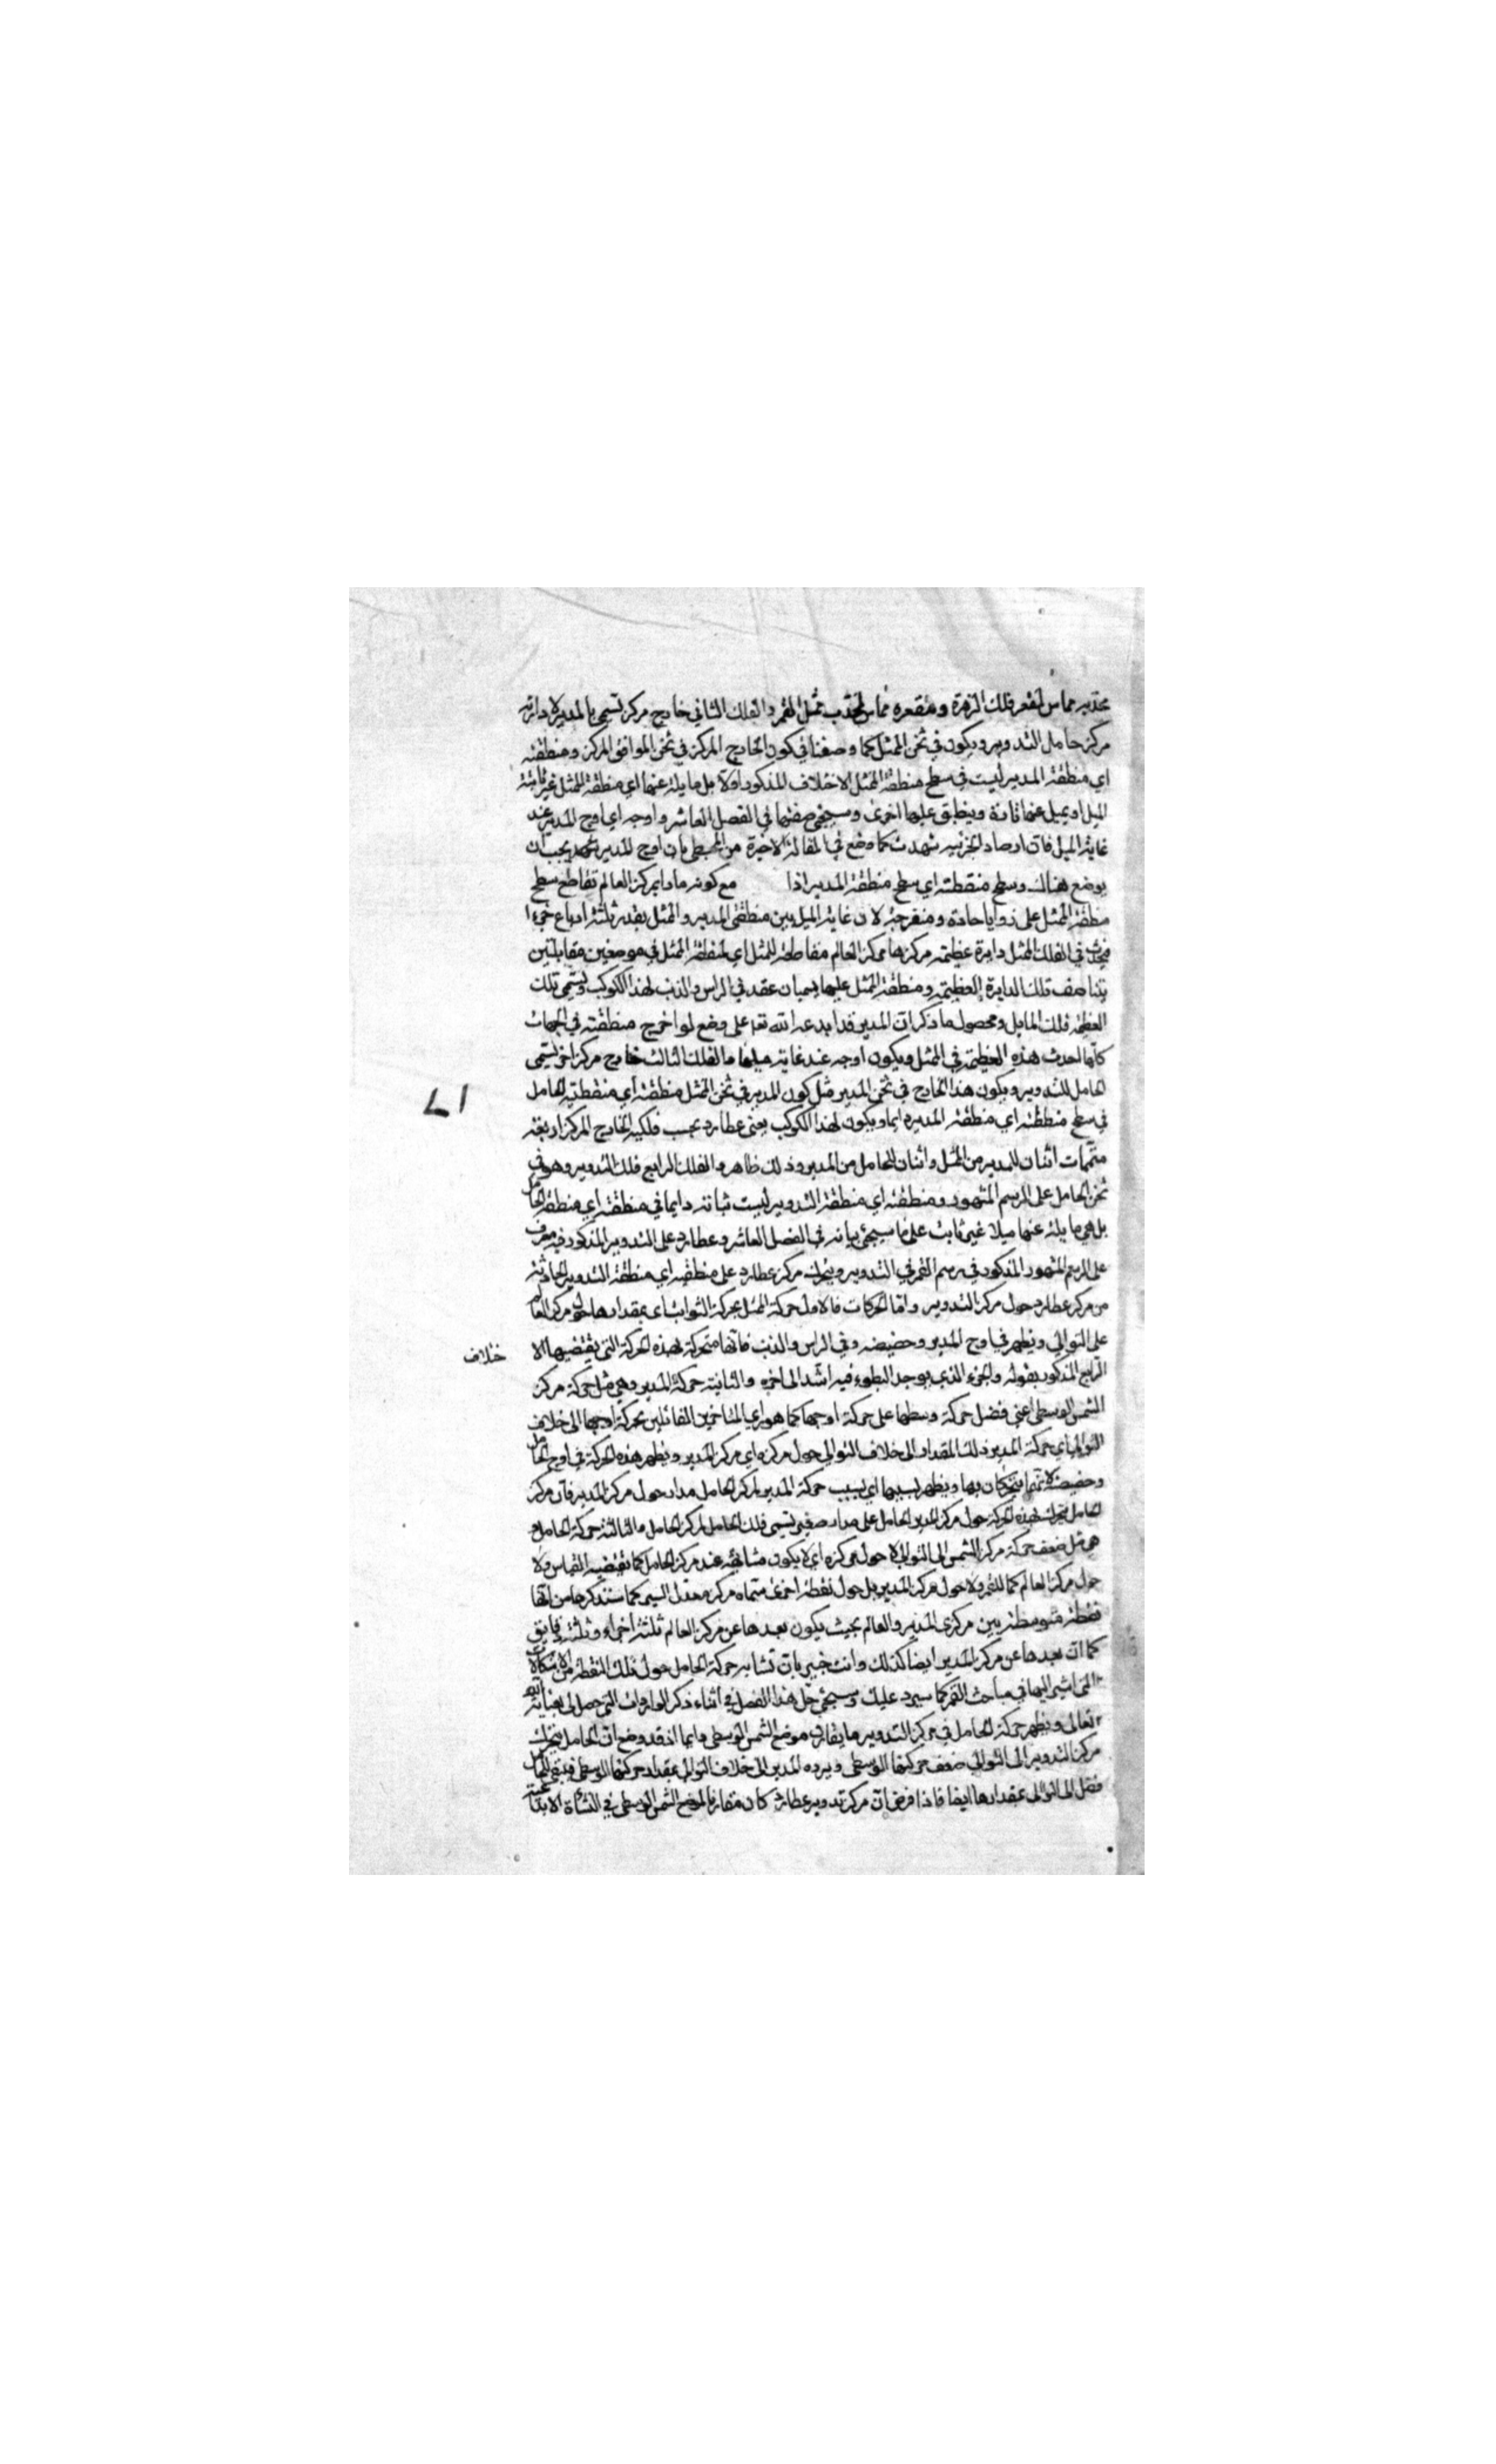 محدبه مماس لمقعر فلك الزهرة ومقعره مماس لمحدب ممثل القمر والفلك الثاني خارج مركز تسمى بالمدير لادارته
مركز حامل التدوير ويكون في ثخن الممثل كما وصفنا في كون الخارج المركز في ثخن الموافق المركز ومنطقته
اي منطقة المدير ليست في سطح منطقة الممثل الاختلاف المذكور اولا بل مايلة عنها اي منطقة الممثل غير ثابتة
الميل اذ يميل عنها تارة وينطبق عليها اخرى وسيجئ صفتها في الفصل العاشر واوجه اي اوج المدير عند
غاية الميل فان ارصاد الجزئيه شهدت كما وضع في المقالة الاخيرة من المجسطي بان اوج المدير يجب ان
يوضع هناك وسطح منقطته اي سطح منطقة المدير اذا مع كونه مارا بمركز العالم تقاطع سطح
منطقة الممثل على زوايا حادة ومنفرجة لان غاية الميل بين منطقتي المدير والممثل بقدر ثلثة ارباع جزء
فيحدث في الفلك الممثل دايرة عظيمة مركزها مركز العالم مقاطعة للممثل اي لمنطقة الممثل في موضعين متقابلين
يتناصف تلك الدايرة العظيمة ومنطقة الممثل عليهما يسميان عقدتي الراس والذنب لهذا الكوكب وتسمى تلك
العظيمة فلك المايل ومحصول ما ذكر ان المدير قد ابدعه الله تعا على وضع لو اخرج منطقته في الجهات
كلها لحدث هذه العظيمة في الممثل ويكون اوجه عند غاية ميلها والفلك الثالث خارج مركز اخر تسمى
الحامل للتدوير ويكون هذا الخارج في ثخن المدير مثل كون المدير في ثخن الممثل منطقته اي منقطتة الحامل
في سطح منطقته اي منطقة المدير دايما ويكون لهذا الكوكب يعني عطارد بحسب فلكيه الخارج المركز اربعة
متممات اثنان للمدير من الممثل واثنان للحامل من المدير وذلك ظاهر والفلك الرابع فلك التدوير وهو في
ثخن الحامل على الرسم المشهور ومنطقته اي منطقة التدوير ليست ثباتة دايما في منطقته اي منطقة الحامل
بل هي مايلة عنها ميلا غير ثابت على ما سيجئ بيانه في الفصل العاشر وعطارد على التدوير المذكور فيه مغرق
على الرسم المشهور المذكور في رسم القمر في التدوير ويتحرك مركز عطارد على منطقته اي منطقة التدوير الحادثة
من مركز عطارد حول مركز التدوير واما الحركات فالاولى حركة الممثل بحركة الثوابت اي بمقدارها حول مركز العالم
على التوالي ويظهر في اوج المدير وحضيضه وفي الراس والذنب فانها متحركة بهذه الحركة التي يقتضيها الا
خلاف
الرابع المذكور بقوله والجزء الذي يوجد البطوء فيه اشد الى اخره والثانية حركة المدير وهي مثل حركة مركز
الشمس الوسطى اعني فضل حركة وسطها على حركة اوجها كما هو راي المتاخرين القائلين بحركة اوجها الى خلاف
التوالي اي حركة المدير ذلك المقدار الى خلاف التوالي حول مركزه اي مركز المدير ويظهر هذه الحركة في اوج الحامل
وحضيضه لانهما يتحركان بها ويظهر بسببها اي بسبب حركة المدير لمركز الحامل مدار حول مركز المدير فان مركز
الحامل يتحرك بهذه الحركة حول مركز المدير الحامل على مدار صغير تسمى فلك الحامل لمركز الحامل والثالثة حركة الحامل و
هي مثل ضعف حركة مركز الشمس الى التوالي لا حول مركزه اي لا يكون متشابهة عند مركز الحامل كما تقتضيه القياس ولا
حول مركز العالم كما للقمر ولا حول مركز المدير بل حول نقطة اخرى متماه مركز معدل السير كما سنذكر ها من انها
نقطة متوسطة بين مركزي المدير والعالم بحيث يكون بعدها عن مركز العالم ثلثة اجزاء وثلثة دقايق
كما ان بعدها عن مركز المدير ايضا كذلك وانت خبير بان تشابه حركة الحامل حول تلك النقطة من الاشكالات
التي اشير اليها في مباحث القمر كما سيرد عليك وسيجئ حل هذا الفصل في اثناء ذكر الوارد ات التي حصل لي بعناية الله
تعالى ويظهر حركة الحامل في مركز التدوير ما يقارن موضع الشمس الوسطى دايما اذ قد وضع ان الحامل يتحرك
مركز التدوير الى التوالي ضعف حركتها الوسطى ويرده المدير الى خلاف التوالي بمقدار حركتها الوسطى فيبقى للحامل
فضل الى التوالي بمقدارها ايضا فاذا فرض ان مركز تدوير عطارد كان مقارنا لموضع الشمس الوسطى في النشاة الابداعية